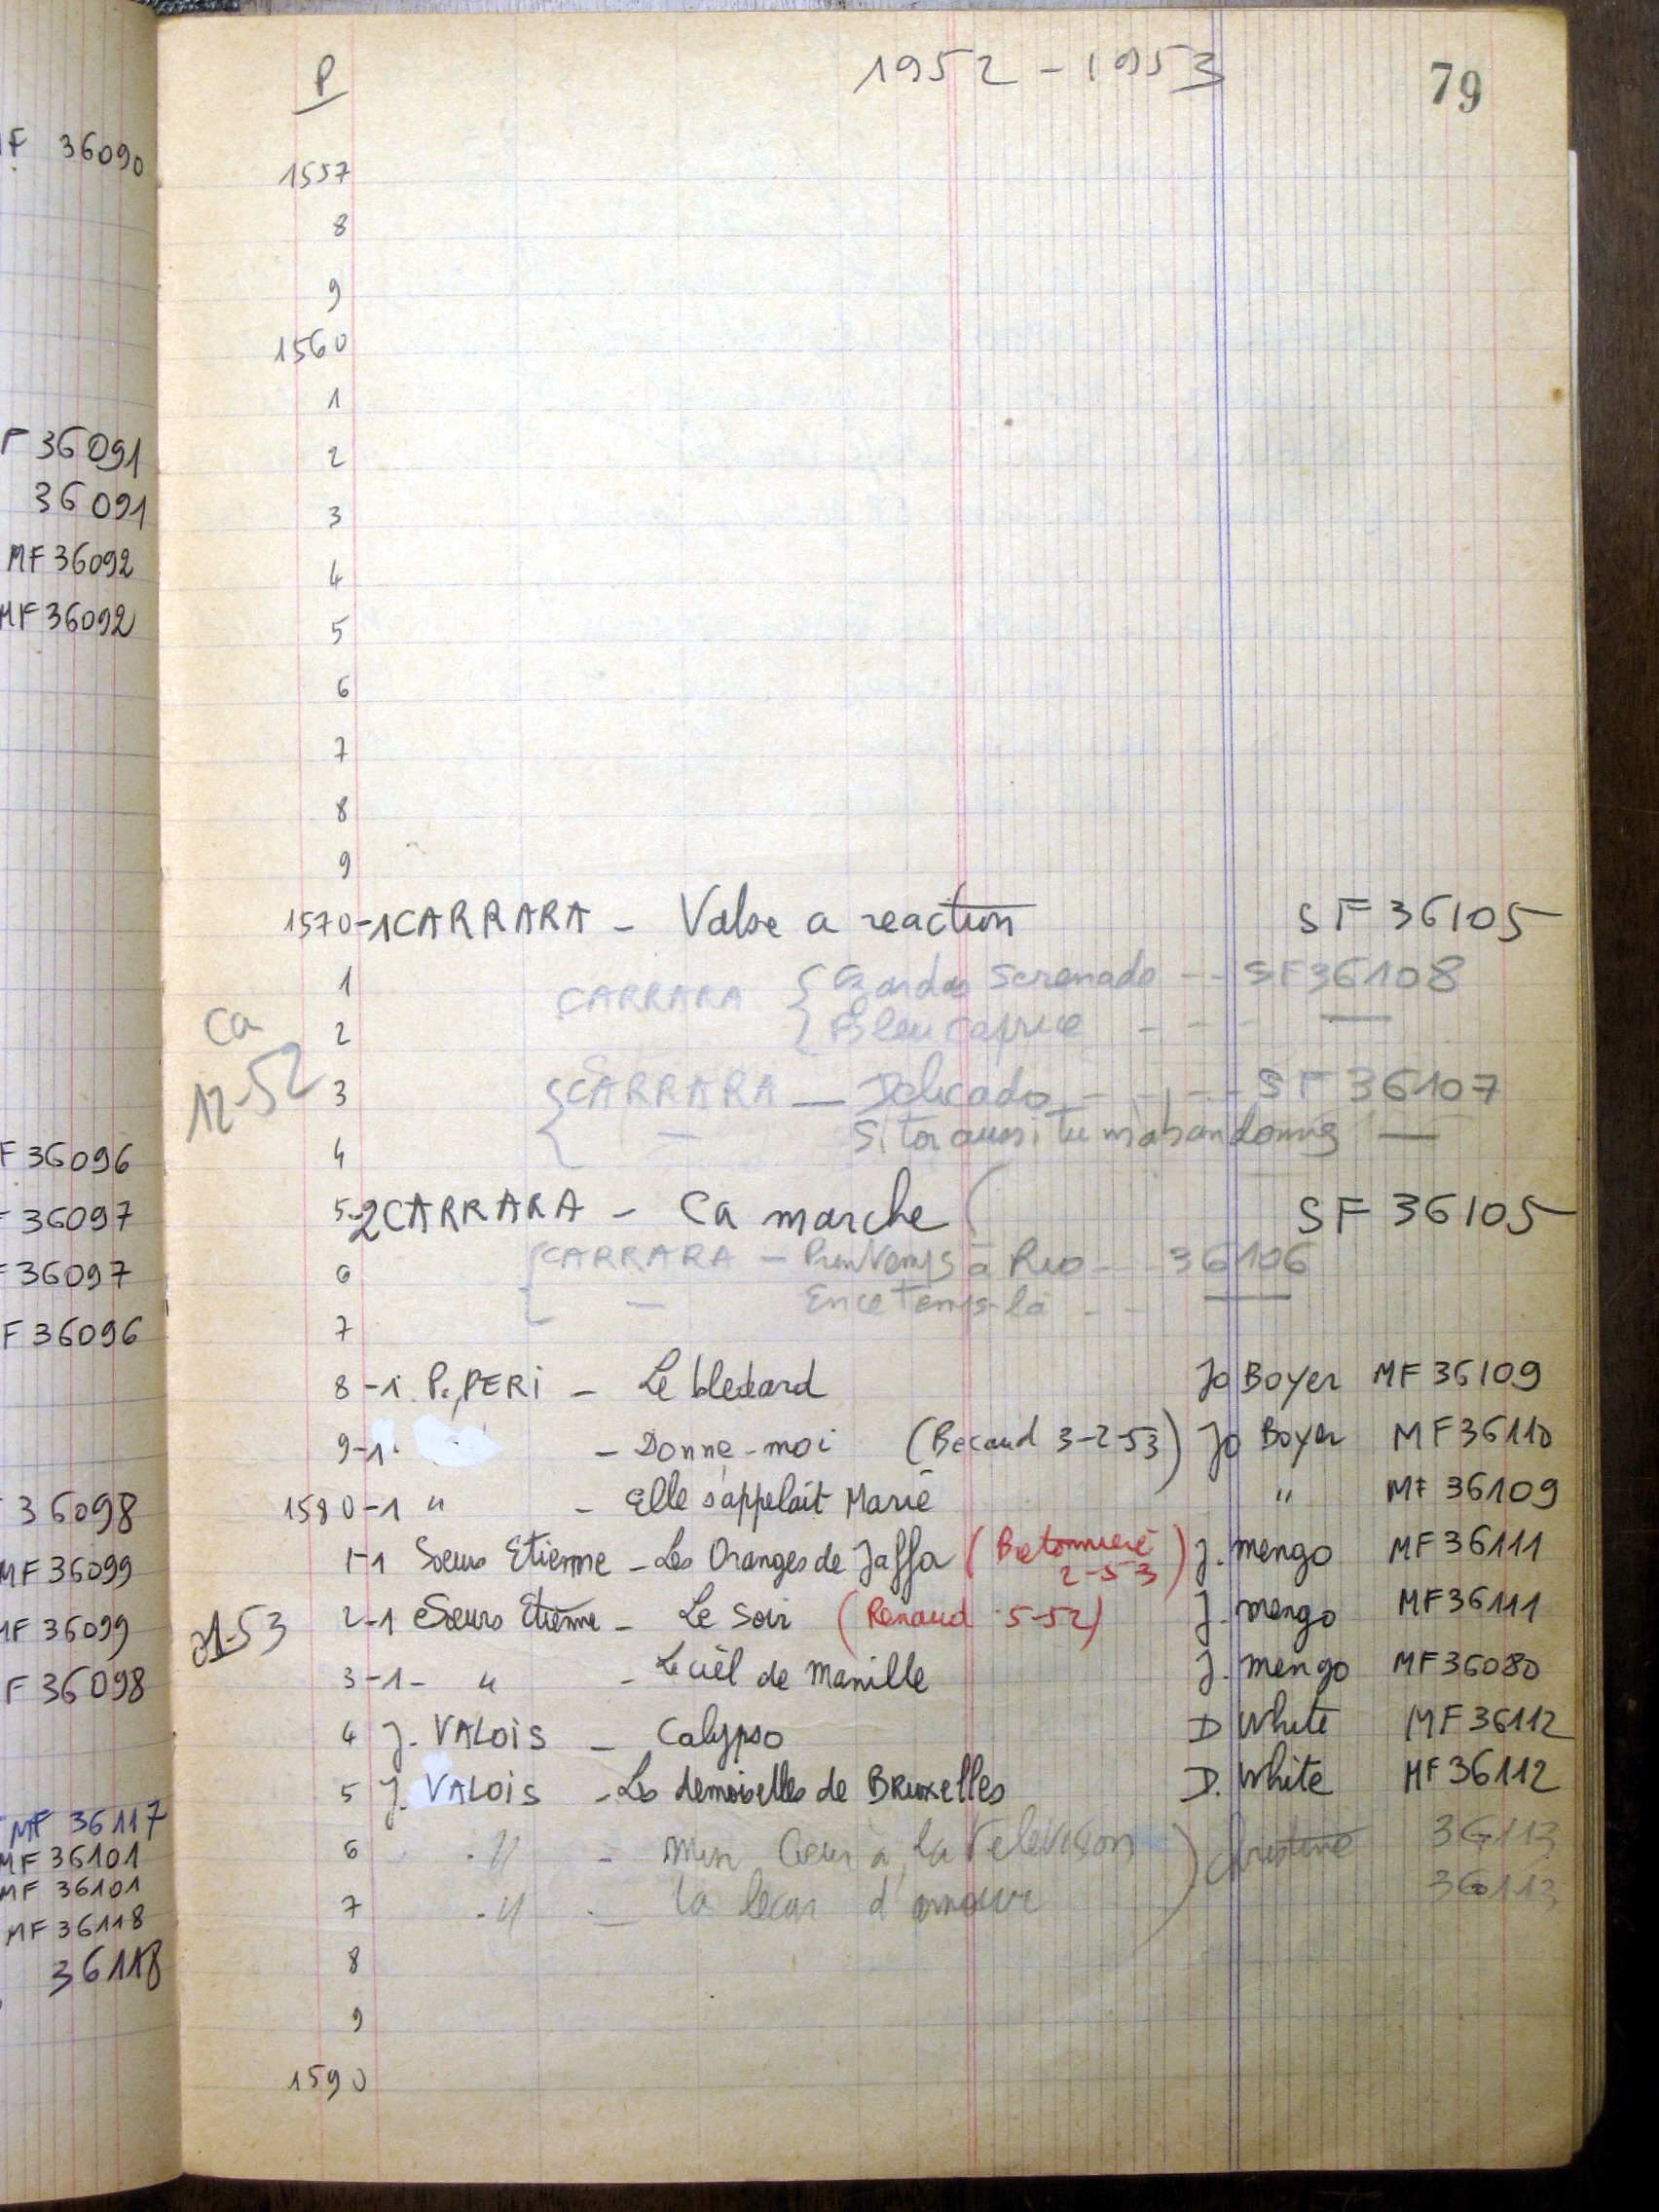 F 36090
F 36091
36091
MF 36092
MF 36092
F 36096
F 36097
F 36097
F 36096
36098
MF 36099
MF 36099
F 36098
MF 36117
MF 36101
MF 36101
MF 36118
36118
P 1952 - 1953 79
1557
8
9
1560
1
2
3
4
5
6
7
8
9
1570-1 CARRARA - Valse a reaction SF 36105
1 CARRARA Serenade -- SF 36108
Ca
2 Bleu caprice - - - —
12-52
3 CARRARA — Delicado - - - - SF 36107
4 — Si toi aussi tu m'abandonnes —
5-2 CARRARA - Ca marche SF 36105
6 CARRARA - Printemps à Rio --- 36106
— En ce temps-là - - —
7
8-1. P. PERI - Le bledard Jo Boyer MF 36109
9-1. - Donne-moi (Becaud 3-2-53) Jo Boyer MF 36110
1580-1 " - Elle s'appelait Marie " MF 36109
1-1 Soeurs Etienne - Les Oranges de Jaffa ( 2-53) J. mengo MF 36111
01-53 2-1 Soeurs Etienne - Le soir (Renaud 5-52) J. mengo MF 36111
3-1- " - Le ciel de Manille J. mengo MF 36080
4 J. VALOIS - Calypso D White MF 36112
5 J. VALOIS - Les demoiselles de Bruxelles D. White MF 36112
6 " - Mon Coeur a la Television ) Christiné 36113
7 " - la lecon d'amour 36113
8
9
1590